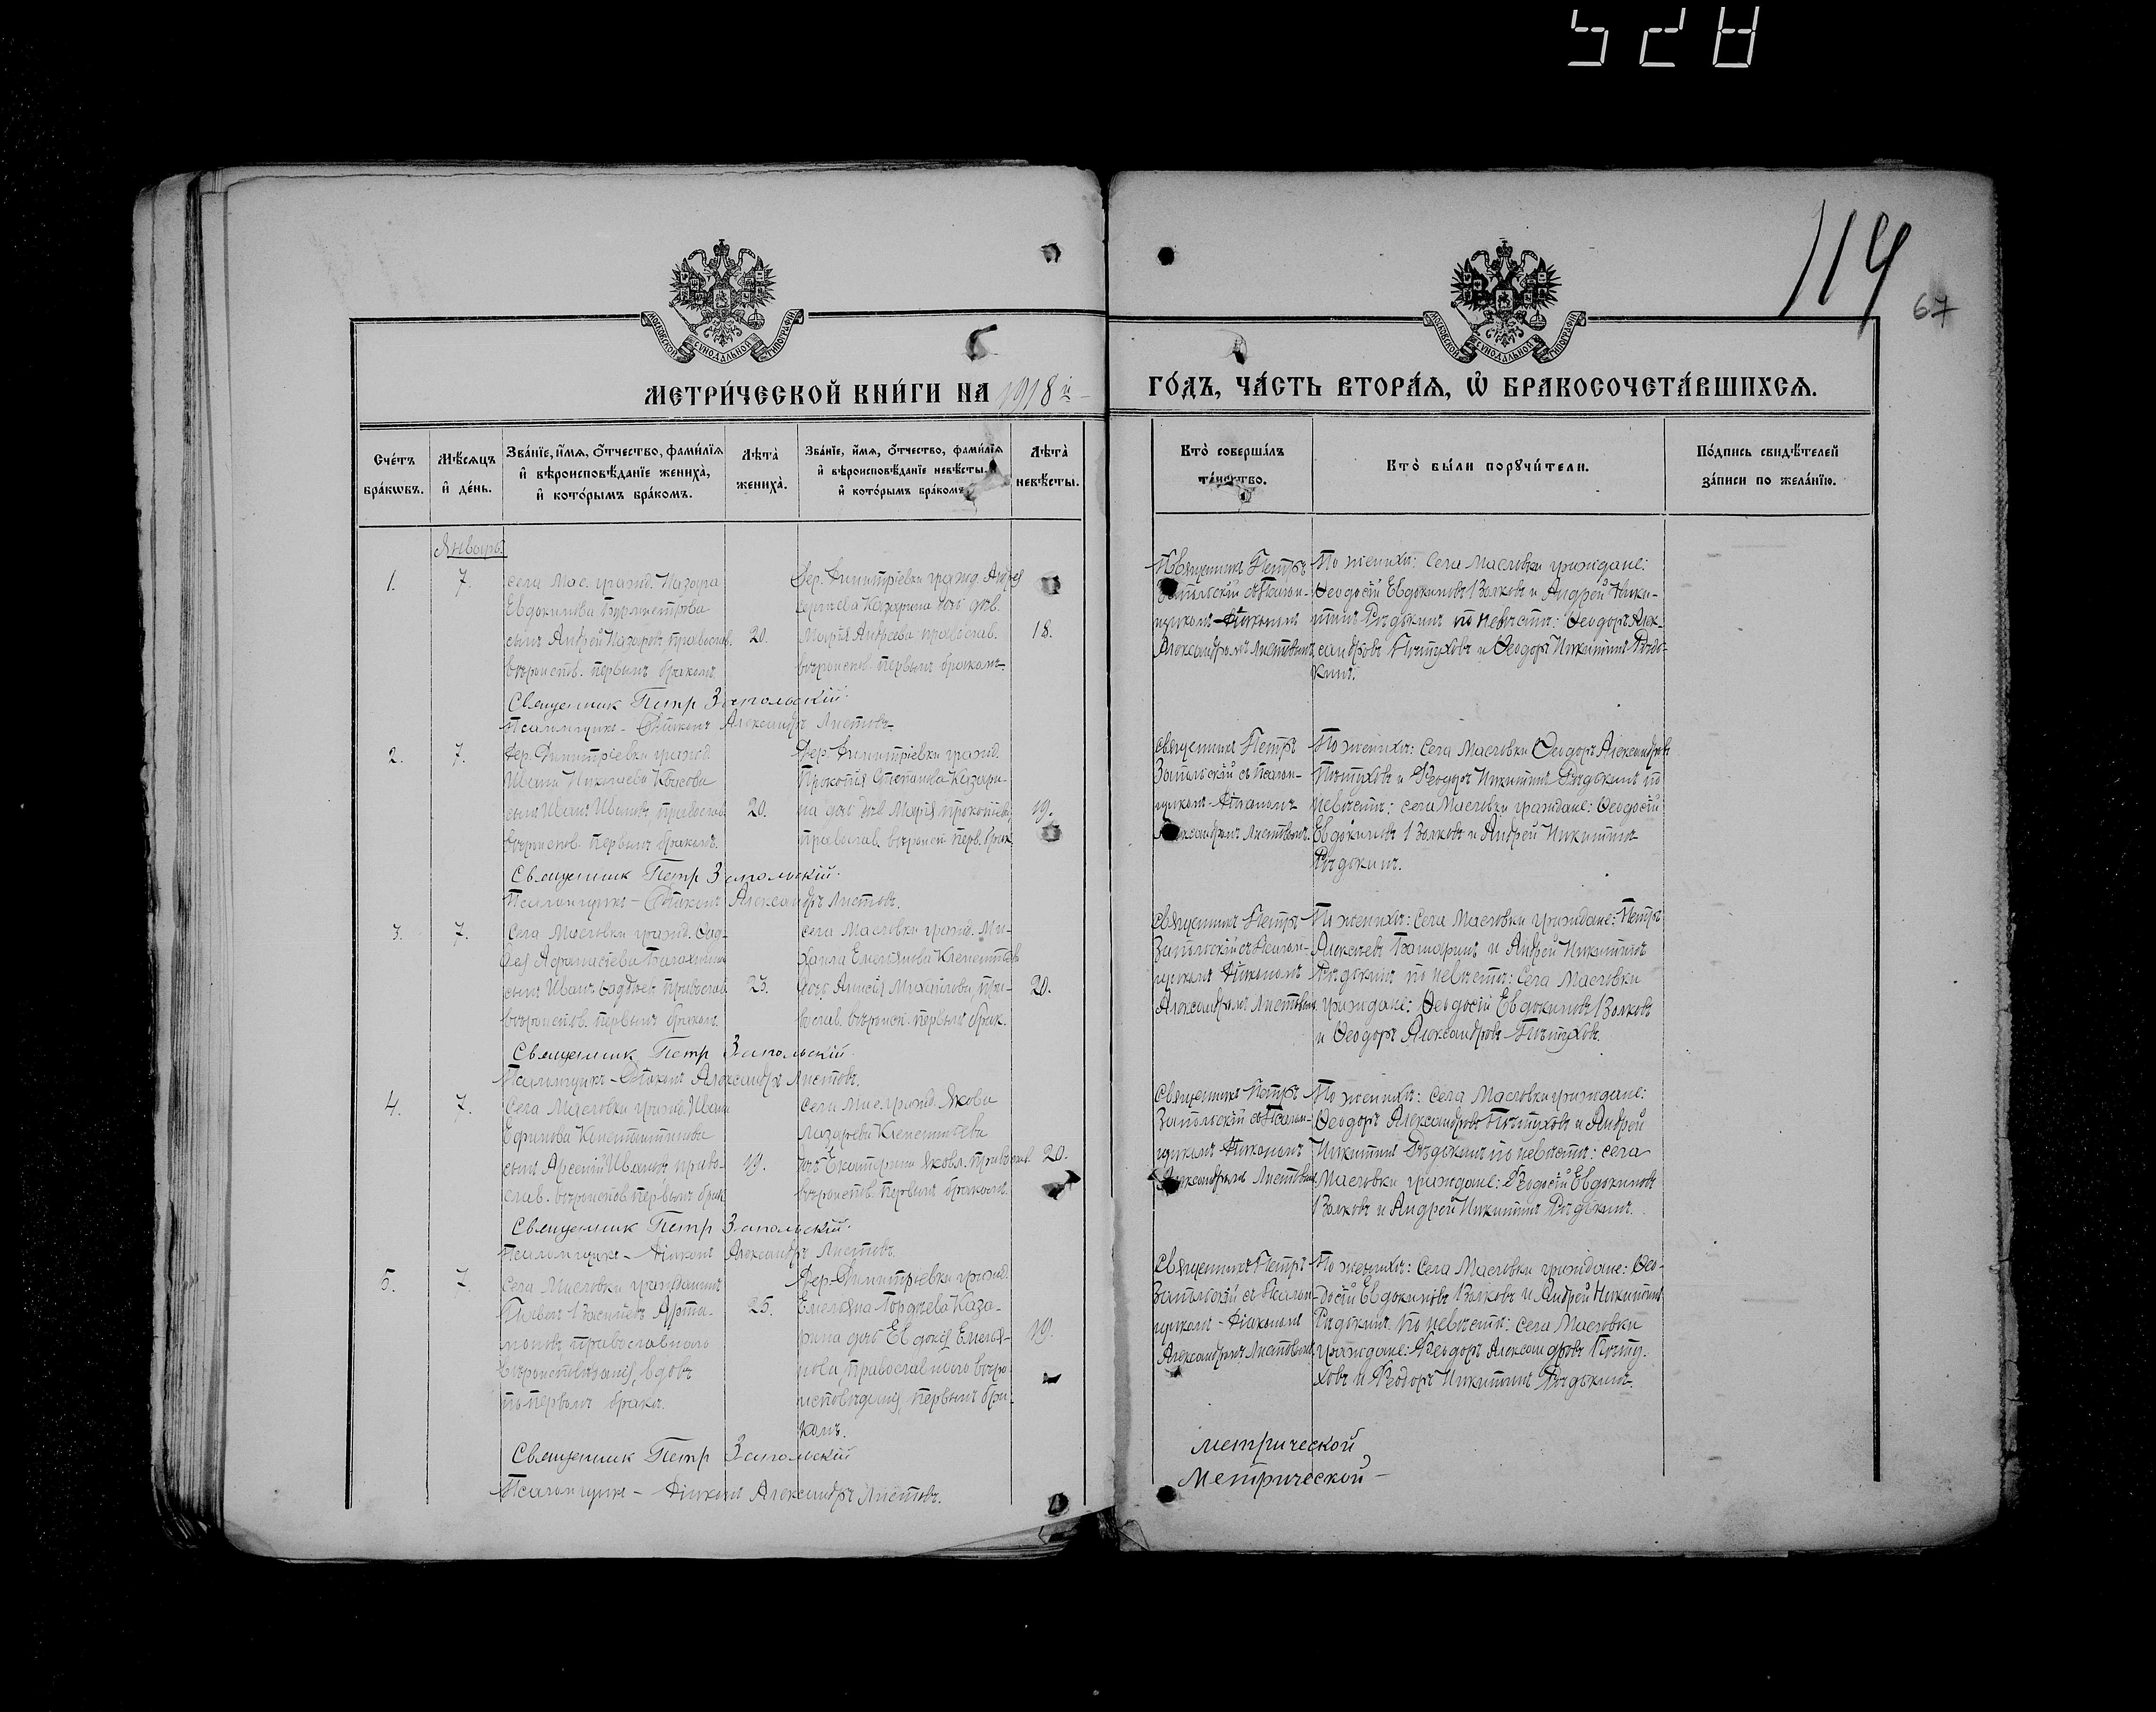 528
114
67
МОСКОВСКОЙ СѴНОДАЛЬНОЙ ТИПОГРАФІИ
МОСКОВСКОЙ СѴНОДАЛЬНОЙ ТИПОГРАФІИ
МЕТРИ́ЧЕСКОЙ КНИ́ГИ НА 1918 й
ГО́ДЪ, ЧА́СТЬ ВТОРА́Ѧ, Ѡ҆ БРАКОСОЧЕТА́ВШИХСѦ.
Сче́тъ бра́кѡвъ.
Мѣ́сѧцъ и҆ де́нь.
Зва́нїе, и҆́мѧ, ѻ҆́тчество, фами́лїѧ
и҆ вѣроисповѣ́данїе жениха̀,
и҆ кото́рымъ бра́комъ.
Лѣ́та жениха̀.
Зва́нїе, и҆́мѧ, ѻ҆́тчество, фами́лїѧ
и҆ вѣроисповѣ́данїе невѣ́сты, и҆
и҆ кото́рымъ бра́комъ
Лѣ́та невѣ́сты.
Кто̀ соверша́лъ та́инство.
Кто̀ бы́ли порꙋчи́тели.
По́дпись свидѣ́телей
за́писи по жела́нїю.
Январь
1.
7.
села Мас. гражд. Назара
Евдокимова Бурмистрова
сынъ Андрей Назаровъ православ.
вѣроиспов. первымъ бракомъ
20.
Дер. Димитріевки гражд. Андрея
Сергѣева Казарина дочь дѣв.
Марія Андреева православ.
вѣроиспов. первымъ бракомъ
18.
Священникъ Петръ
Запольскій съ Псалом-
щикомъ Діакономъ
Александромъ Листовымъ
По женихѣ: Села Масловки граждане:
Ѳеодосій Евдокимовъ Волковъ и Андрей Ники-
тинъ Рѣдькинъ по невѣстѣ: Ѳеодоръ Алек-
сандровъ Пѣтуховъ и Ѳеодоръ Никитинъ Рѣдь-
кинъ.
Священник Петр Запольскій.
Псаломщикъ - Діаконъ Александръ Листовъ
2.
7.
Дер. Димитріевки гражд.
Ивана Николаева
сынъ Иванъ Ивановъ православ.
вѣроиспов. первымъ бракомъ.
20.
Дер. Димитріевки гражд.
Прокопія Степанова Казари-
на дочь дѣв. Марія Прокопіева,
православ. вѣроисп. перв. брак.
19.
Священникъ Петръ
Запольскій съ Псалом-
щикомъ Діакономъ
Александромъ Листовымъ.
По женихѣ: Села Масловки Ѳеодоръ Александровъ
Пѣтуховъ и Ѳеодоръ Никитинъ Рѣдькинъ по
невѣстѣ: села Масловки граждане: Ѳеодосій
Евдокимовъ Волковъ и Андрей Никитинъ
Рѣдькинъ.
Священник Петр Запольскій.
Псаломщикъ - Діаконъ Александръ Листовъ.
3.
7.
Села Масловки гражд. Ѳад-
дея Афанасіева
сынъ Иванъ Ѳаддѣевъ православ
вѣроиспов. первымъ бракомъ.
23.
села Масловки гражд. Ми-
хаила Емеліянова Клементьева
дочь Анисія Михайлова, пра-
вослав. вѣроисп. первымъ брак.
20.
Священникъ Петръ
Запольскій съ Псалом-
щикомъ Діакономъ
Александромъ Листовымъ
По женихѣ: Села Масловки граждане: Петръ
Алексѣевъ и Андрей Никитинъ
Рѣдькинъ по невѣстѣ: Села Масловки
граждане: Ѳеодосій Евдокимовъ Волковъ
и Ѳеодоръ Александровъ Пѣтуховъ.
Священник Петр Запольскій
Псаломщикъ - Діаконъ Александръ Листовъ.
4.
7.
Села Масловки гражд. Ивана
Ефимова
сынъ Арсеній Ивановъ право-
слав. вѣроиспов. первымъ брак
19.
Села Мас. гражд. Якова
Лазарева Клементьева
дочь Екатерина Яковл. православ.
вѣроиспов. первымъ бракомъ.
20.
Священникъ Петръ
Запольскій съ Псалом-
щикомъ Діакономъ
Александромъ Листовымъ
По женихѣ: Села Масловки граждане:
Ѳеодоръ Александровъ Пѣтуховъ и Андрей
Никитинъ Рѣдькинъ по невѣстѣ: села
Масловки граждане: Ѳеодосій Евдокимовъ
Волковъ и Андрей Никитинъ Рѣдькинъ.
Священник Петр Запольскій.
Псаломщикъ - Діаконъ Александръ Листовъ.
5.
7.
Села Масловки гражданинъ
Павелъ Васильевъ Арта-
моновъ, православнаго
вѣроисповѣданія, вдовъ
по первомъ бракѣ.
25.
Дер. Димитріевки гражд.
Емеліяна Гордѣева Каза-
рина дочь Евдокія Емелья-
нова, православнаго вѣро
исповѣданія, первымъ бра-
комъ.
19.
Священникъ Петръ
Запольскій съ Псалом
щикомъ - Діакономъ
Александромъ Листовымъ
По женихѣ: Села Масловки граждане: Ѳео-
досій Евдокимовъ Волковъ и Андрей Никитинъ
Рѣдькинъ. По невѣстѣ: Села Масловки
граждане: Ѳеодоръ Александровъ Пѣту-
ховъ и Ѳеодоръ Никитинъ Рѣдькинъ.
Священник Петр Запольскій
Псаломщикъ - Діаконъ Александръ Листовъ.
метрической
Метрической -